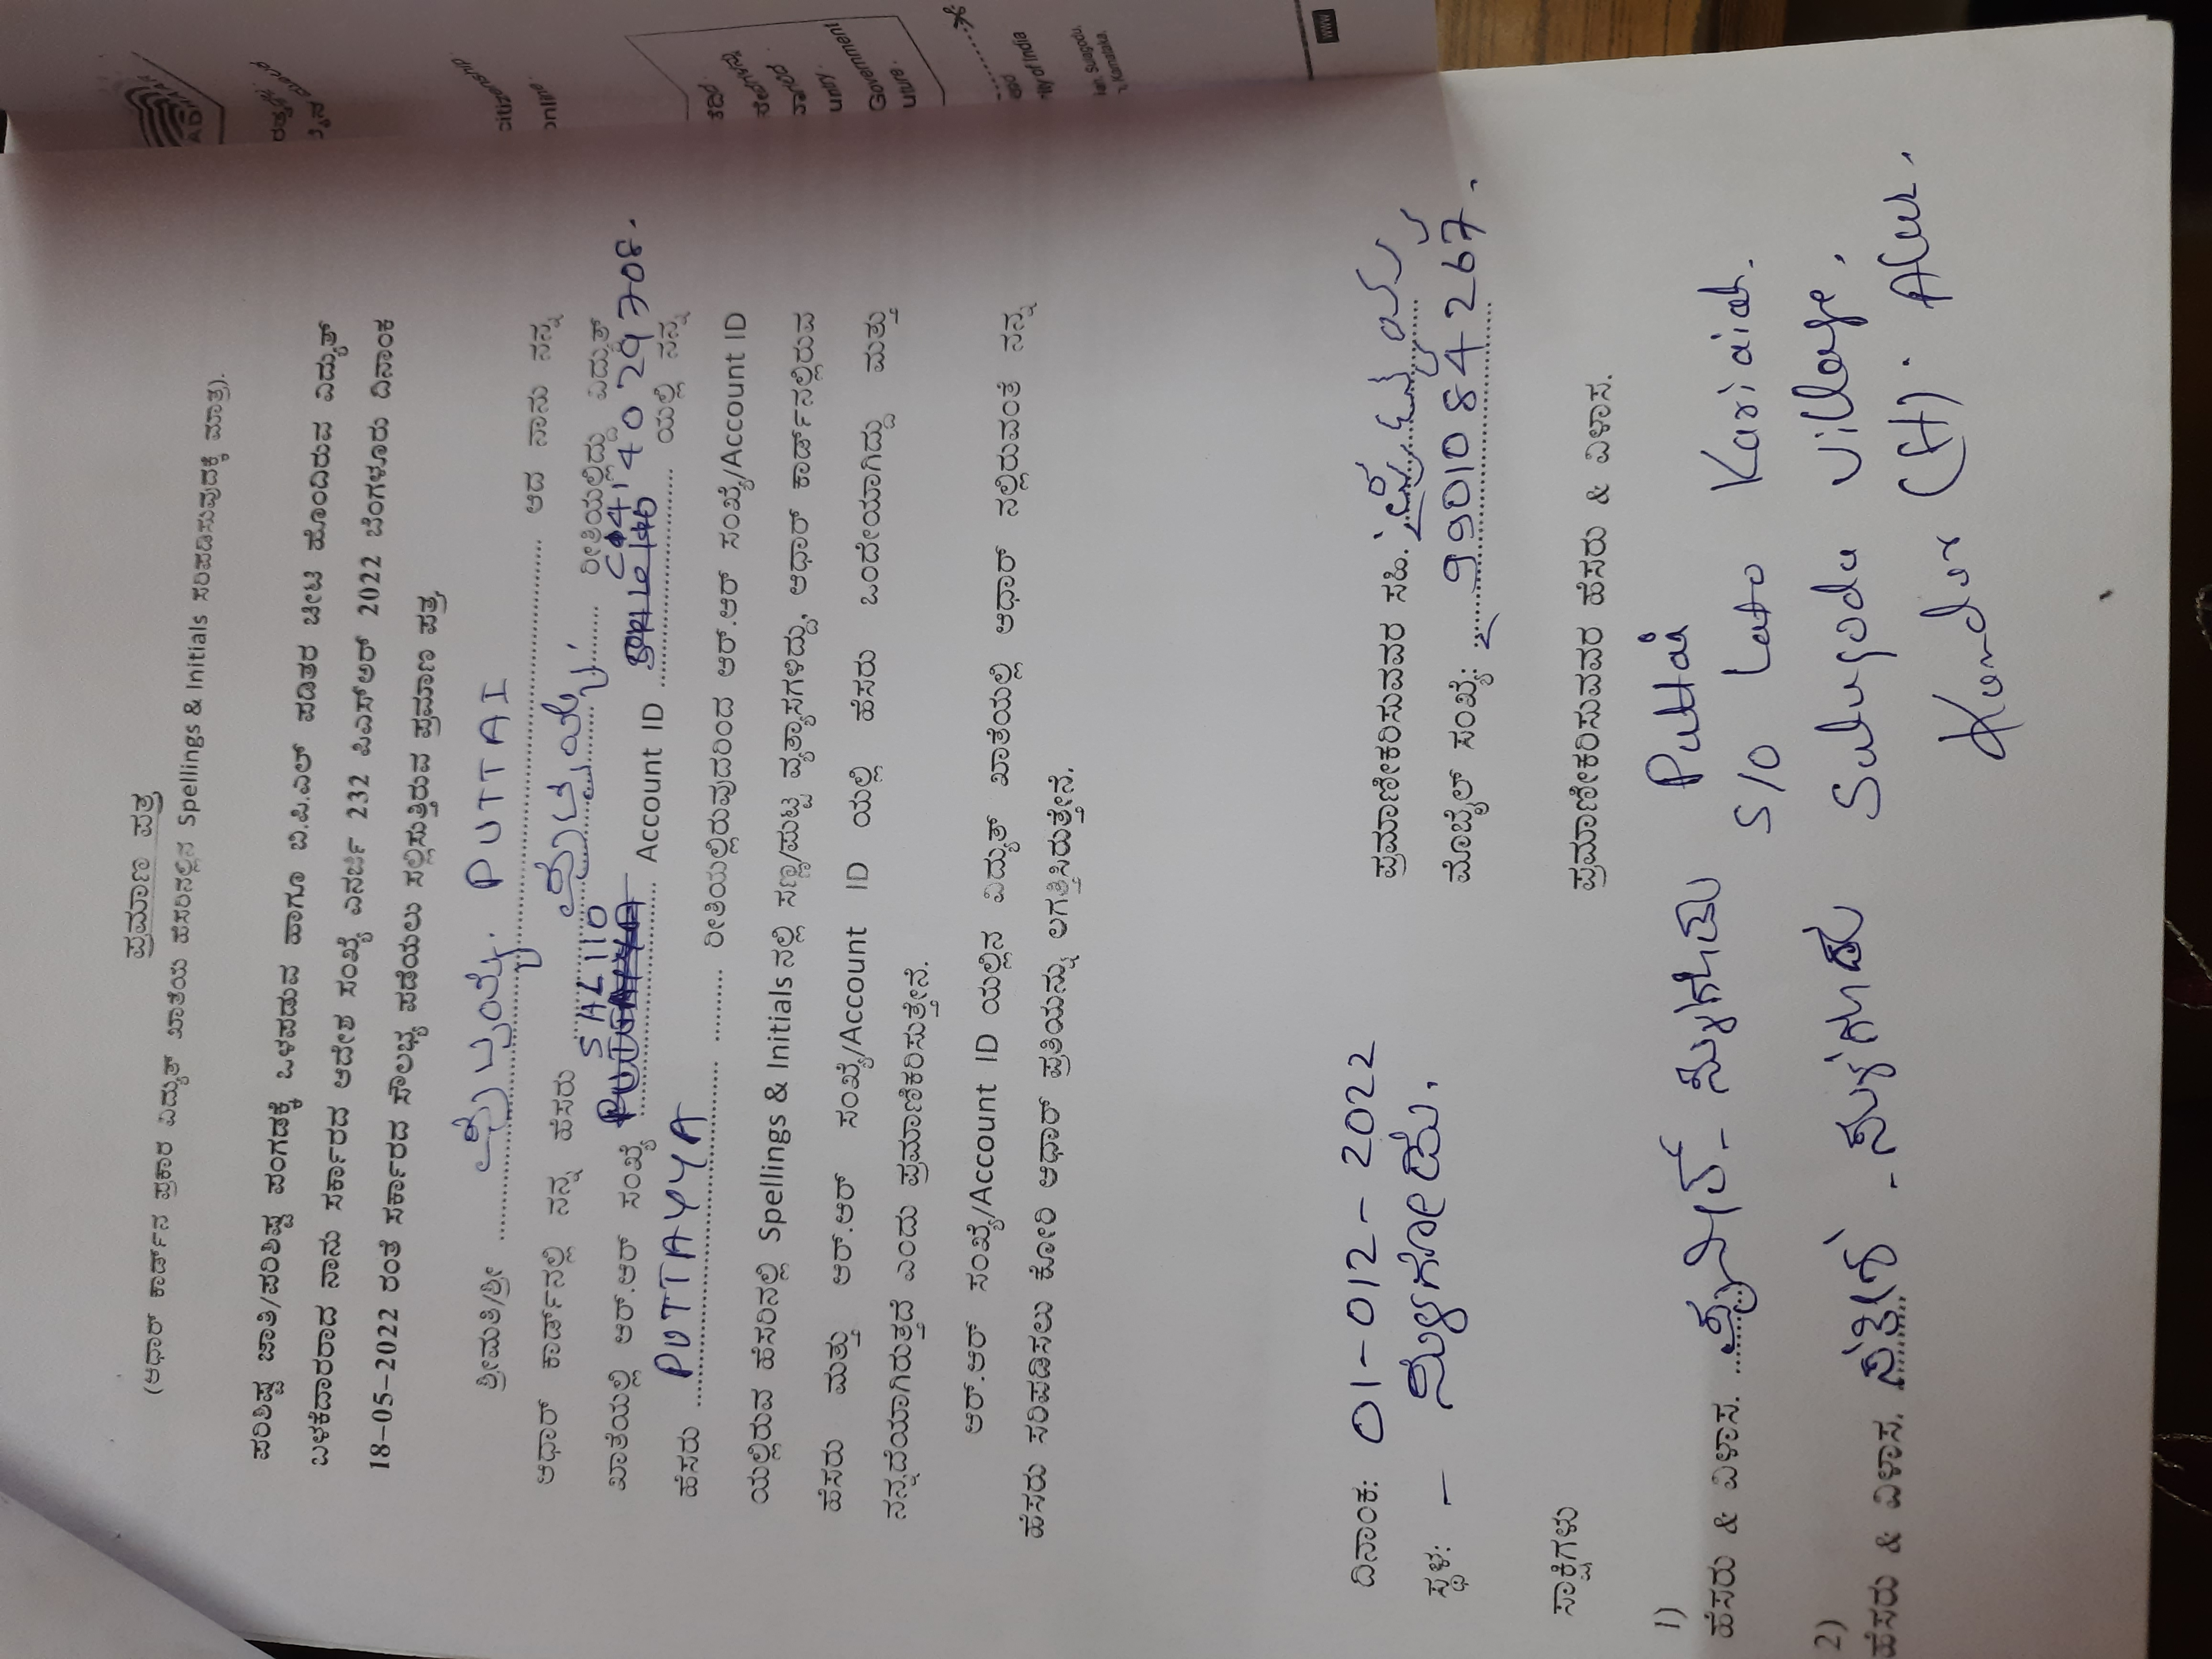 ಪ್ರಮಾಣ ಪತ್ರ
(ಆಧಾರ್ ಕಾರ್ಡ್‌ನ ಪ್ರಕಾರ ವಿದ್ಯುತ್ ಖಾತೆಯ ಹೆಸರಿನಲ್ಲಿನ Spellings & Initials ಸರಿಪಡಿಸುವುದಕ್ಕೆ ಮಾತ್ರ).
ಪರಿಶಿಷ್ಟ ಜಾತಿ/ಪರಿಶಿಷ್ಟ ಪಂಗಡಕ್ಕೆ ಒಳಪಡುವ ಹಾಗೂ ಬಿ.ಪಿ.ಎಲ್ ಪಡಿತರ ಚೀಟಿ ಹೊಂದಿರುವ ವಿದ್ಯುತ್
ಬಳಕೆದಾರರಾದ ನಾನು ಸರ್ಕಾರದ ಆದೇಶ ಸಂಖ್ಯೆ ಎನರ್ಜಿ 232 ಪಿಎಸ್ಆರ್ 2022 ಬೆಂಗಳೂರು ದಿನಾಂಕ
18-05-2022 ರಂತೆ ಸರ್ಕಾರದ ಸೌಲಭ್ಯ ಪಡೆಯಲು ಸಲ್ಲಿಸುತ್ತಿರುವ ಪ್ರಮಾಣ ಪತ್ರ
ಶ್ರೀಮತಿ/ಶ್ರೀ PUTTAI ಆದ ನಾನು ನನ್ನ
ಆಧಾರ್ ಕಾರ್ಡ್‌ನಲ್ಲಿ ನನ್ನ ಹೆಸರು ರೀತಿಯಲ್ಲಿದ್ದು ವಿದ್ಯುತ್
ಖಾತೆಯಲ್ಲಿ ಆರ್.ಆರ್ ಸಂಖ್ಯೆ SAL110 Account ID ಯಲ್ಲಿ ನನ್ನ
ಹೆಸರು PUTTAYYA ರೀತಿಯಲ್ಲಿರುವುದರಿಂದ ಆರ್.ಆರ್ ಸಂಖ್ಯೆ/Account ID
ಯಲ್ಲಿರುವ ಹೆಸರಿನಲ್ಲಿ Spellings & Initials ನಲ್ಲಿ ಸಣ್ಣ/ಪುಟ್ಟ ವ್ಯತ್ಯಾಸಗಳಿದ್ದು, ಆಧಾರ್ ಕಾರ್ಡ್‌ನಲ್ಲಿರುವ
ಹೆಸರು ಮತ್ತು ಆರ್.ಆರ್ ಸಂಖ್ಯೆ/Account ID ಯಲ್ಲಿ ಹೆಸರು ಒಂದೇಯಾಗಿದ್ದು ಮತ್ತು
ನನ್ನದೆಯಾಗಿರುತ್ತದೆ ಎಂದು ಪ್ರಮಾಣಿಕರಿಸುತ್ತೇನೆ.
ಆರ್.ಆರ್ ಸಂಖ್ಯೆ/Account ID ಯಲ್ಲಿನ ವಿದ್ಯುತ್ ಖಾತೆಯಲ್ಲಿ ಆಧಾರ್ ನಲ್ಲಿರುವಂತೆ ನನ್ನ
ಹೆಸರು ಸರಿಪಡಿಸಲು ಕೋರಿ ಆಧಾರ್ ಪ್ರತಿಯನ್ನು ಲಗತ್ತಿಸಿರುತ್ತೇನೆ.
ದಿನಾಂಕ: 01-012-2022
ಸ್ಥಳ: - ಸುಳಗೋಡು.
ಪ್ರಮಾಣೀಕರಿಸುವವರ ಸಹಿ.
ಮೊಬೈಲ್ ಸಂಖ್ಯೆ: 9901084267.
ಸಾಕ್ಷಿಗಳು
ಪ್ರಮಾಣೀಕರಿಸುವವರ ಹೆಸರು & ವಿಳಾಸ.
1)
ಹೆಸರು & ವಿಳಾಸ.
Puttai
S/O Late Kariaiah.
2)
ಹೆಸರು & ವಿಳಾಸ.
Sulugodu Village,
Kundur (H). Alur.
citizenship
online.
Government